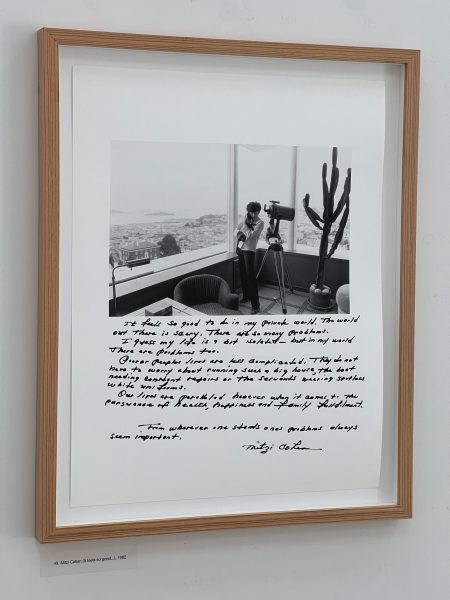 It feels so good to be in my private world. The world
out there is scary. There are so many problems.
I guess my life is a bit isolated — but in my world
there are problems too.
Poorer peoples lives are less complicated. They do not
have to worry about running such a big house, the boat
needing constant repairs or the servants wearing spotless
white uniforms.
Our lives are paralleled however when it comes to the
pursueance of health, happiness and family fulfillment.
From wherever one stands ones problems always
seem important.
Mitzi Cohen
Mitzi Cohen (It feels so good...), 1982